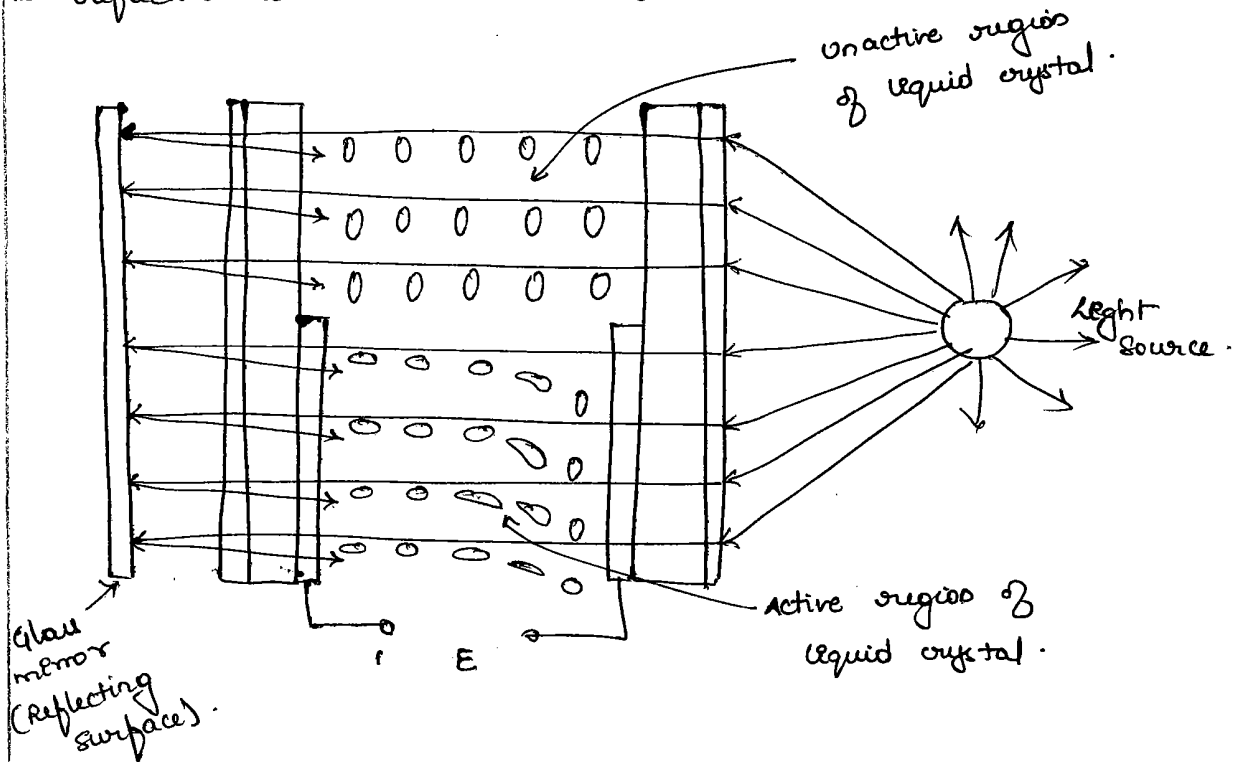 Unactive region
of liquid crystal.
Light
Source.
Active region of
liquid crystal.
Glass
mirror
(Reflecting
surface).
E